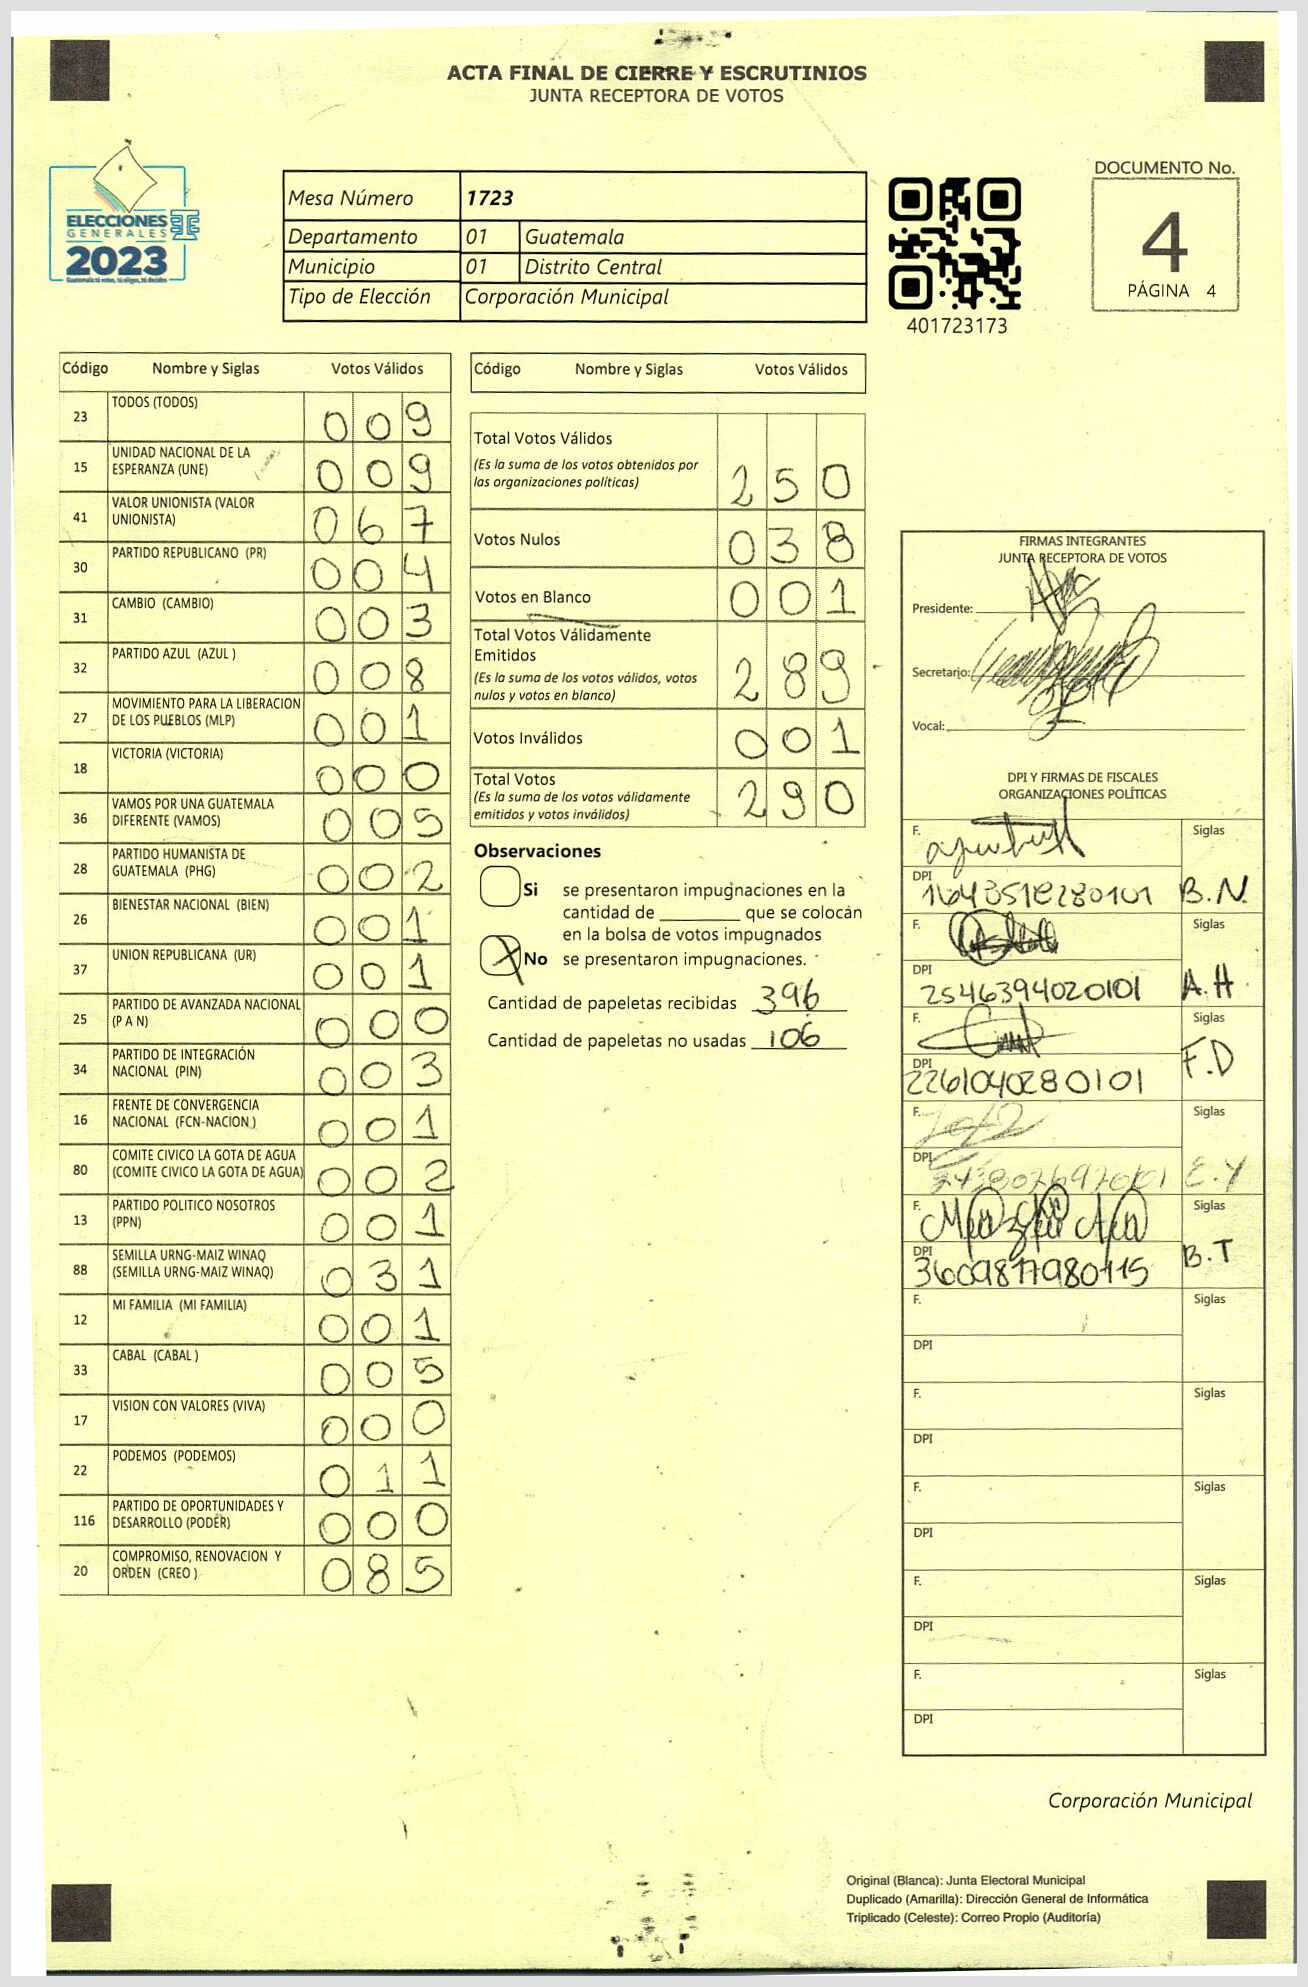 ACTA FINAL DE CIERRE Y ESCRUTINIOS
JUNTA RECEPTORA DE VOTOS
ELECCIONES
GENERALES
2023
Mesa Número 1723
Departamento 01 Guatemala
Municipio 01 Distrito Central
Tipo de Elección Corporación Municipal
401723173
DOCUMENTO No.
4
PÁGINA 4
Código Nombre y Siglas Votos Válidos
23 TODOS (TODOS) 009
15 UNIDAD NACIONAL DE LA
ESPERANZA (UNE) 009
41 VALOR UNIONISTA (VALOR
UNIONISTA) 067
30 PARTIDO REPUBLICANO (PR) 004
31 CAMBIO (CAMBIO) 003
32 PARTIDO AZUL (AZUL ) 008
27 MOVIMIENTO PARA LA LIBERACION
DE LOS PUEBLOS (MLP) 001
18 VICTORIA (VICTORIA) 000
36 VAMOS POR UNA GUATEMALA
DIFERENTE (VAMOS) 005
28 PARTIDO HUMANISTA DE
GUATEMALA (PHG) 002
26 BIENESTAR NACIONAL (BIEN) 001
37 UNION REPUBLICANA (UR) 001
25 PARTIDO DE AVANZADA NACIONAL
(P A N) 000
34 PARTIDO DE INTEGRACIÓN
NACIONAL (PIN) 003
16 FRENTE DE CONVERGENCIA
NACIONAL (FCN-NACION ) 001
80 COMITE CIVICO LA GOTA DE AGUA
(COMITE CIVICO LA GOTA DE AGUA) 002
13 PARTIDO POLITICO NOSOTROS
(PPN) 001
88 SEMILLA URNG-MAIZ WINAQ
(SEMILLA URNG-MAIZ WINAQ) 031
12 MI FAMILIA (MI FAMILIA) 001
33 CABAL (CABAL ) 005
17 VISION CON VALORES (VIVA) 000
22 PODEMOS (PODEMOS) 011
116 PARTIDO DE OPORTUNIDADES Y
DESARROLLO (PODER) 000
20 COMPROMISO, RENOVACION Y
ORDEN (CREO ) 085
Código Nombre y Siglas Votos Válidos
Total Votos Válidos
(Es la suma de los votos obtenidos por
las organizaciones políticas) 250
Votos Nulos 038
Votos en Blanco 001
Total Votos Válidamente
Emitidos
(Es la suma de los votos válidos, votos
nulos y votos en blanco) 289
Votos Inválidos 001
Total Votos
(Es la suma de los votos válidamente
emitidos y votos inválidos) 290
Observaciones
Si se presentaron impugnaciones en la
cantidad de ________ que se colocán
en la bolsa de votos impugnados
No se presentaron impugnaciones.
Cantidad de papeletas recibidas 396
Cantidad de papeletas no usadas 106
FIRMAS INTEGRANTES
JUNTA RECEPTORA DE VOTOS
Presidente:
Secretario:
Vocal:
DPI Y FIRMAS DE FISCALES
ORGANIZACIONES POLÍTICAS
F. Siglas
DPI B.N.
F. Siglas
DPI 2546394020101 A.H.
F. Siglas
DPI 2261040280101 F.D
F. Siglas
DPI E.Y
F. Siglas
DPI B.T
F. Siglas
DPI
F. Siglas
DPI
F. Siglas
DPI
F. Siglas
DPI
F. Siglas
DPI
Corporación Municipal
Original (Blanca): Junta Electoral Municipal
Duplicado (Amarilla): Dirección General de Informática
Triplicado (Celeste): Correo Propio (Auditoría)